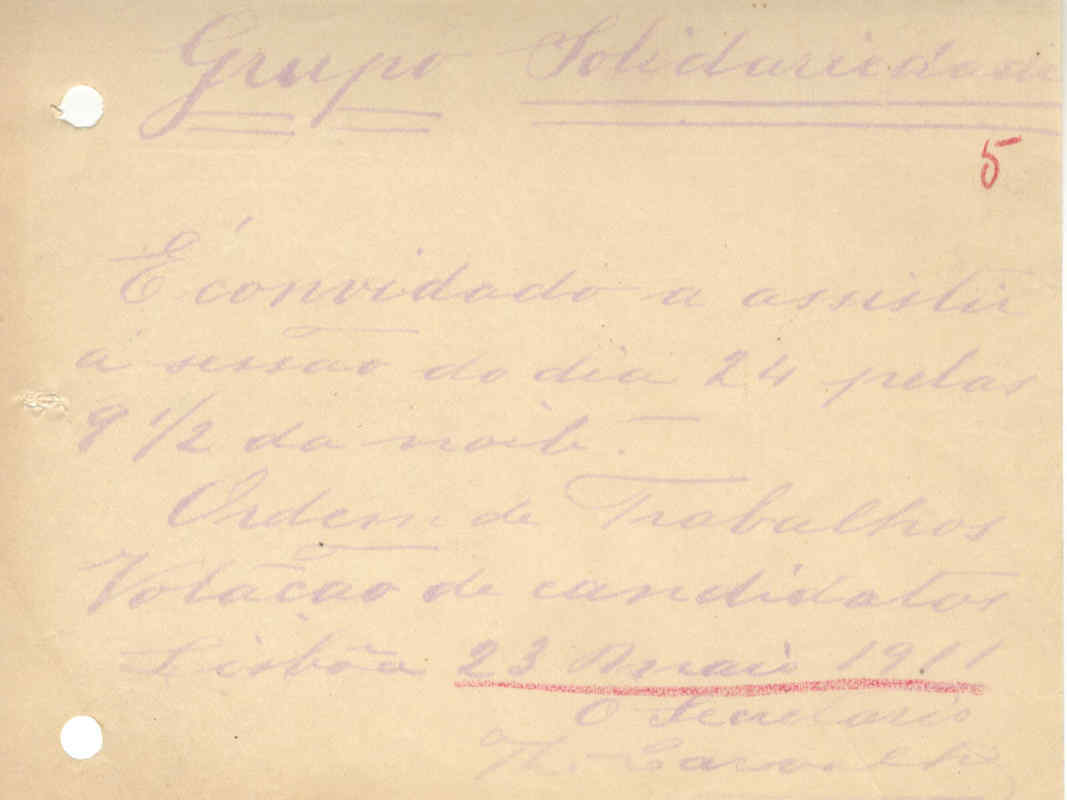 Grupo Solidariedade
5
É convidado a assistir
á sessão do dia 24 pelas
8 1/2 da noite.
Ordem de Trabalhos
Votação de candidatos
Lisbôa 23 Maio 1911
O Secretario
Carvalho